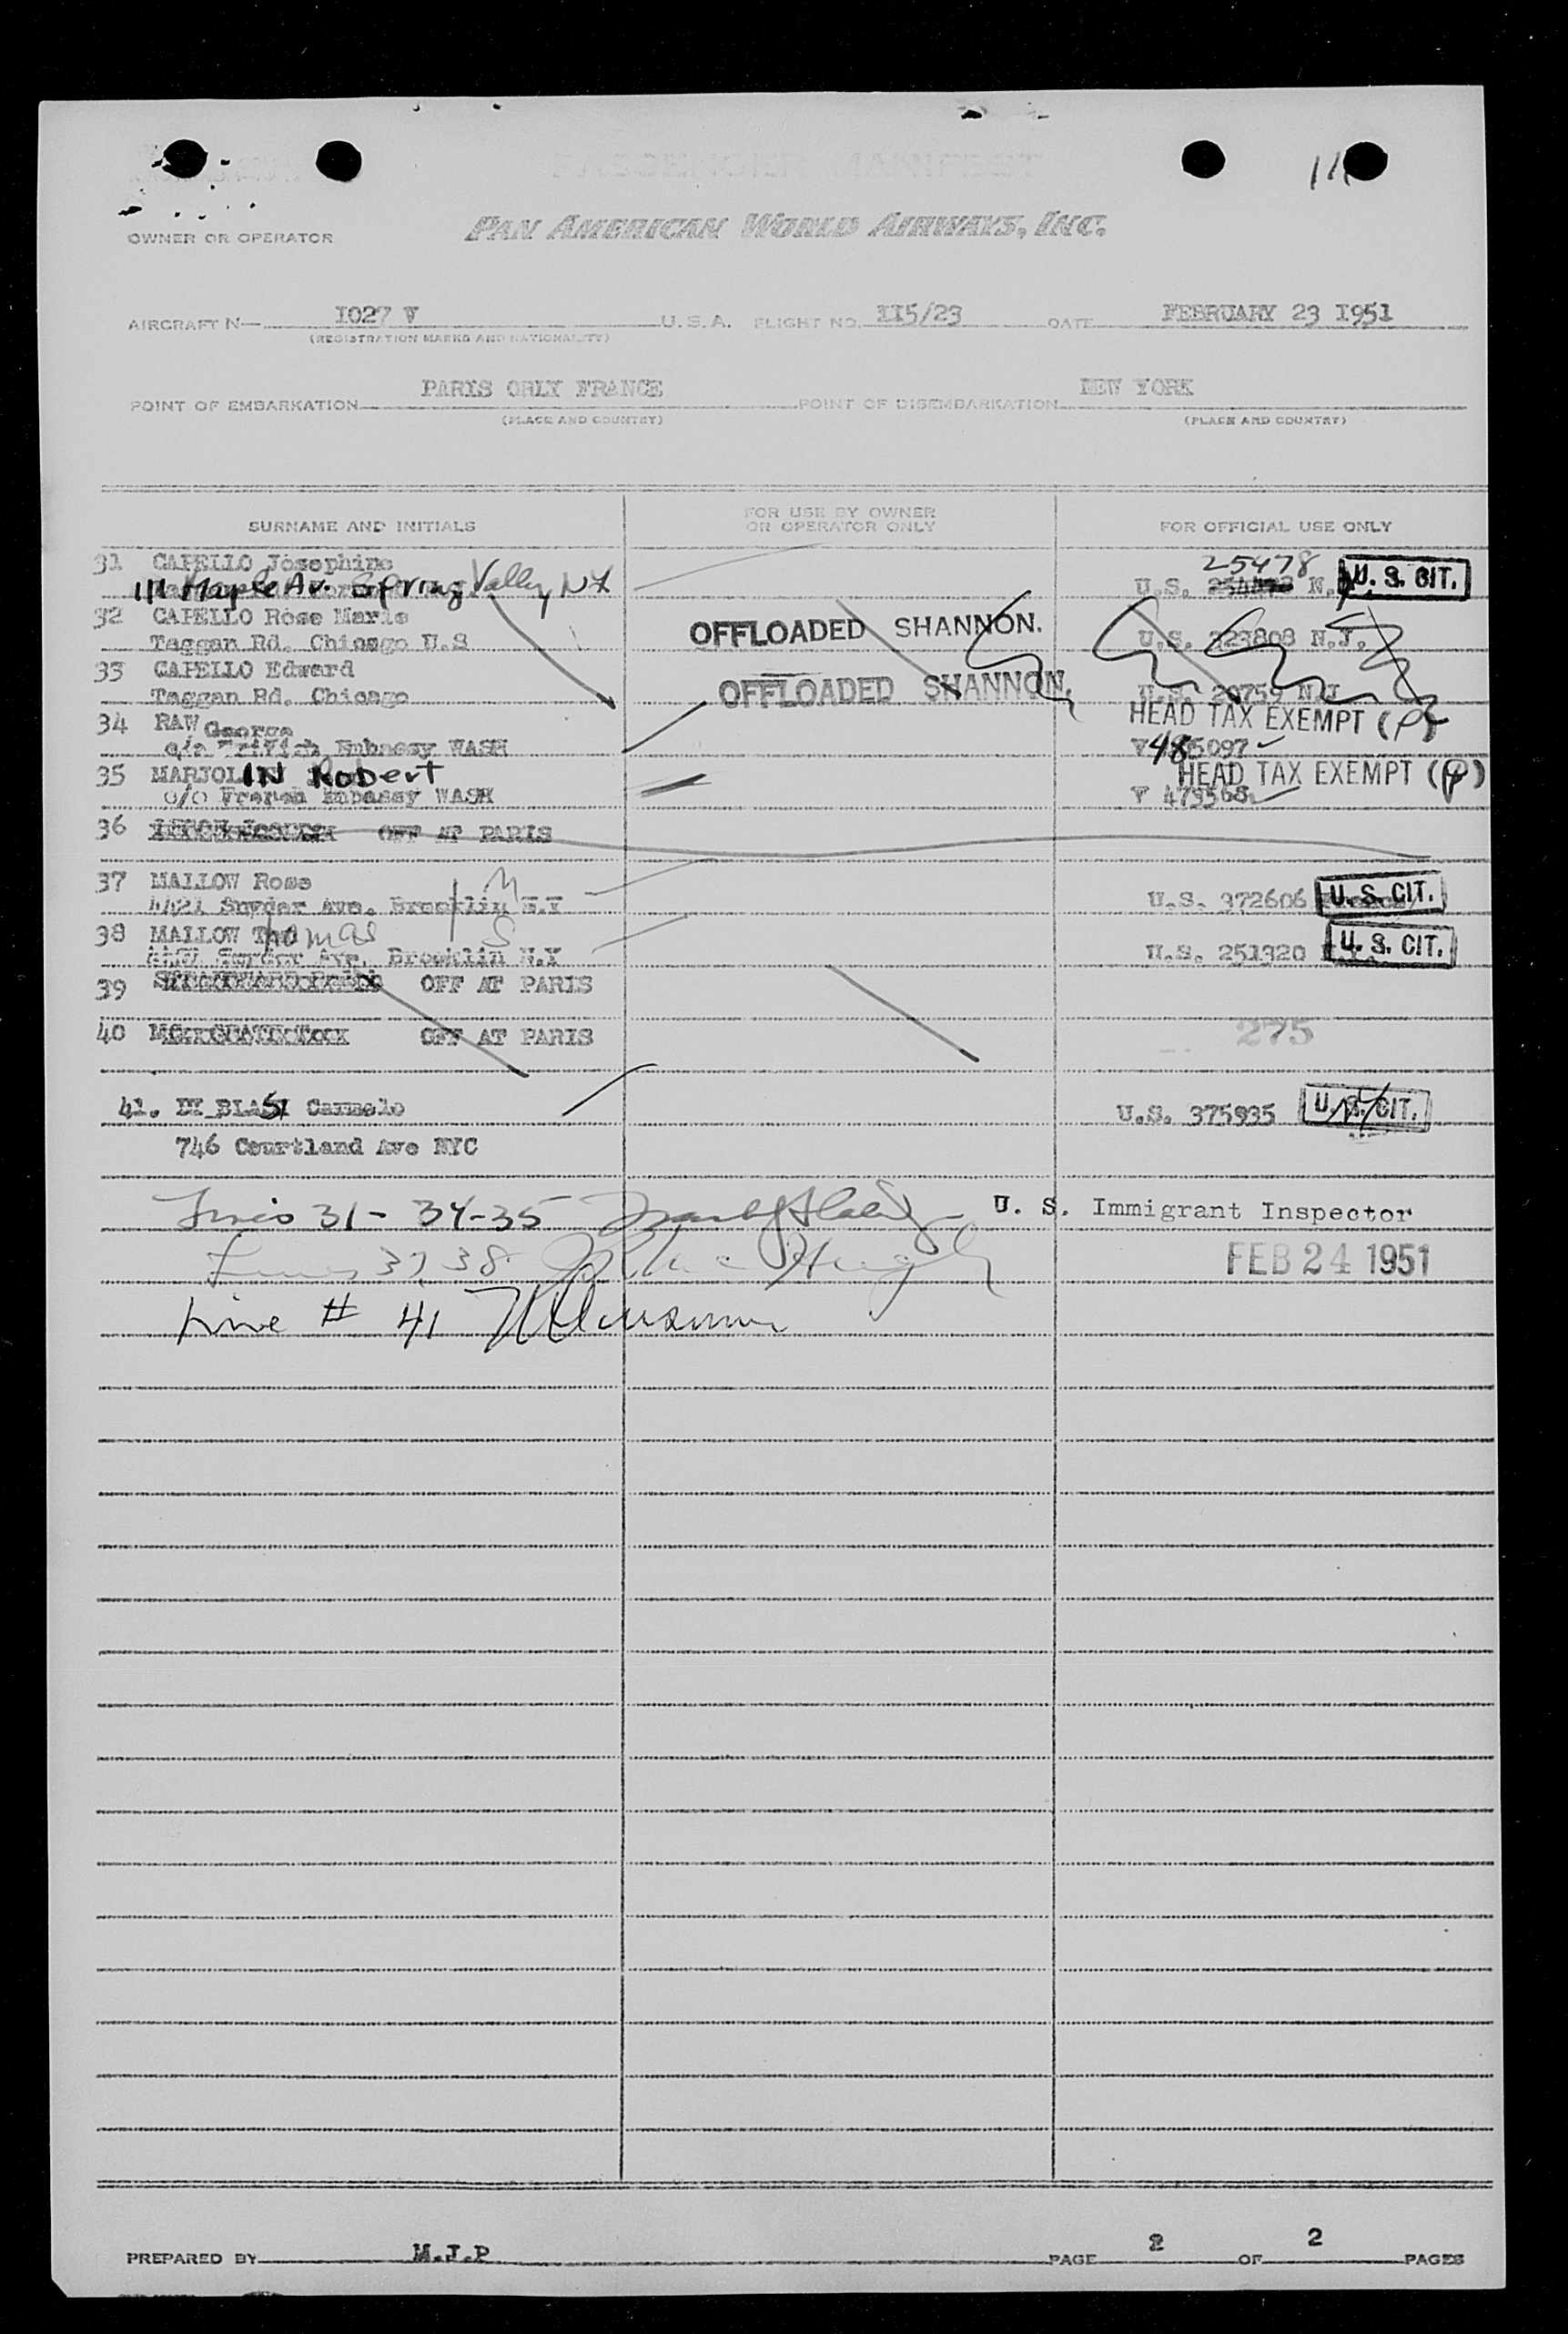 11
OWNER OR OPERATOR PAN AMERICAN WORLD AIRWAYS, INC.
AIRCRAFT N— 1027 V U.S.A. FLIGHT NO. 115/23 DATE FEBRUARY 23 1951
(REGISTRATION MARKS AND NATIONALITY)
POINT OF EMBARKATION PARIS ORLY FRANCE POINT OF DISEMBARKATION NEW YORK
(PLACE AND COUNTRY) (PLACE AND COUNTRY)
SURNAME AND INITIALS FOR USE BY OWNER OR OPERATOR ONLY FOR OFFICIAL USE ONLY
31 CAPELLO Josephine 25478
111 Maple Av. Spring Valley NY U.S. N. U.S. CIT.
32 CAPELLO Rose Marie OFFLOADED SHANNON.
Taggan Rd. Chicago U.S U.S. 223808 N.J.
33 CAPELLO Edward OFFLOADED SHANNON.
Taggan Rd. Chicago U.S. 20755 N.J
34 RAW George HEAD TAX EXEMPT (P)
c/o Embassy WASH V 485097
35 MARJOLIN Robert HEAD TAX EXEMPT (P)
c/o French Embassy WASH V 479568
36 OFF AT PARIS
37 MALLOW Rose M
4421 Snyder Ave. Brooklin N.Y U.S. 372606 U.S. CIT.
38 MALLOW Thomas S
Snyder Ave. Brooklin N.Y U.S. 251920 U.S. CIT.
39 OFF AT PARIS
40 OFF AT PARIS 275
41. DI BLASI Carmelo U.S. 375935 U.S. CIT.
746 Courtland Ave NYC
Lines 31- 34-35 U. S. Immigrant Inspector
Lines 37, 38 FEB 24 1951
Line # 41
PREPARED BY M.J.P PAGE 2 OF 2 PAGES